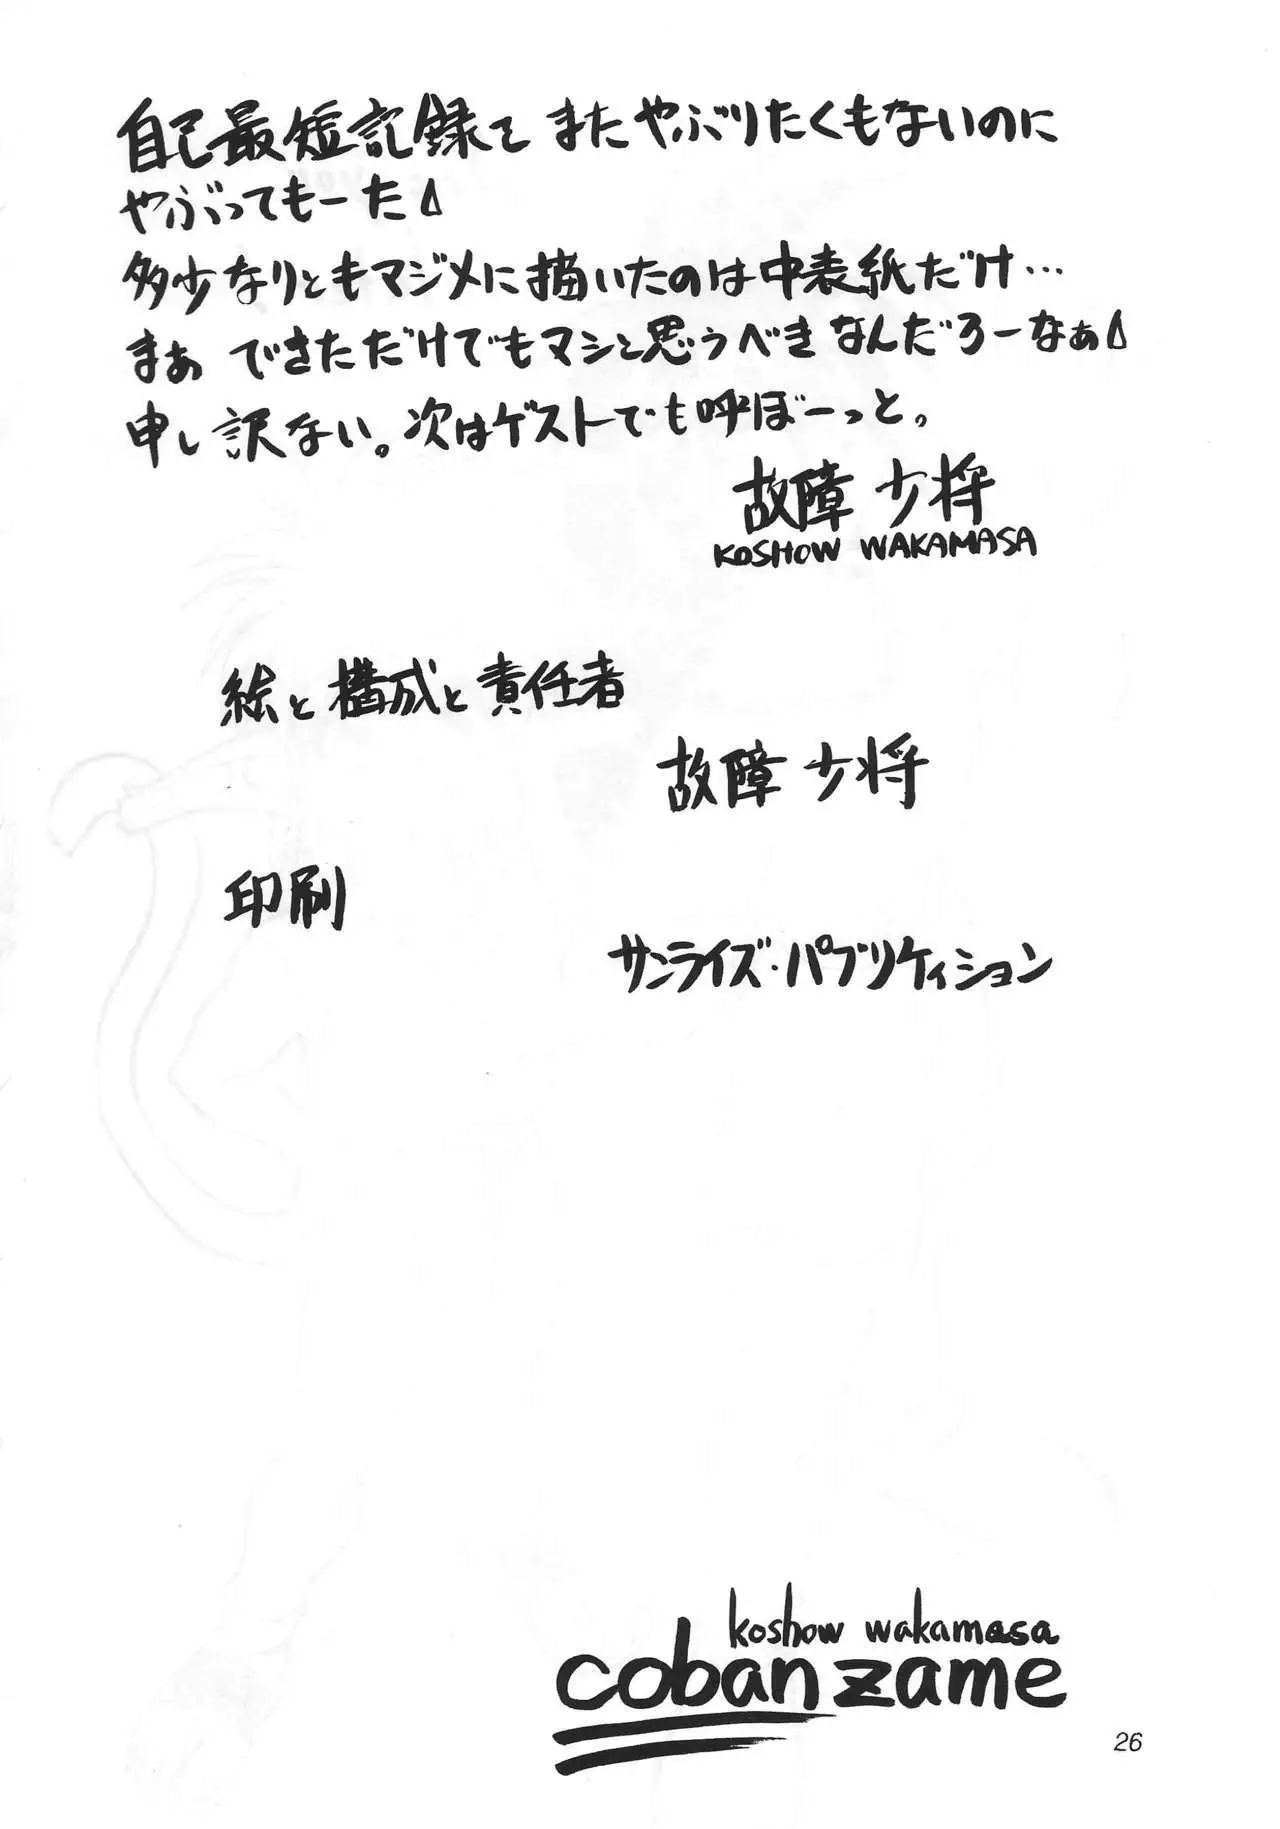 自己最短記録を またやぶりたくもないのに
やぶってもーた
多少なりともマジメに描いたのは中表紙だけ…
まぁ できただけでもマシと思うべきなんだろーなぁ
申し訳ない。次はゲストでも呼ぼーっと。
故障 少将
KOSHOW WAKAMASA
絵と構成と責任者
故障 少将
印刷
サンライズ・パブリケィション
koshow wakamasa
coban zame
26